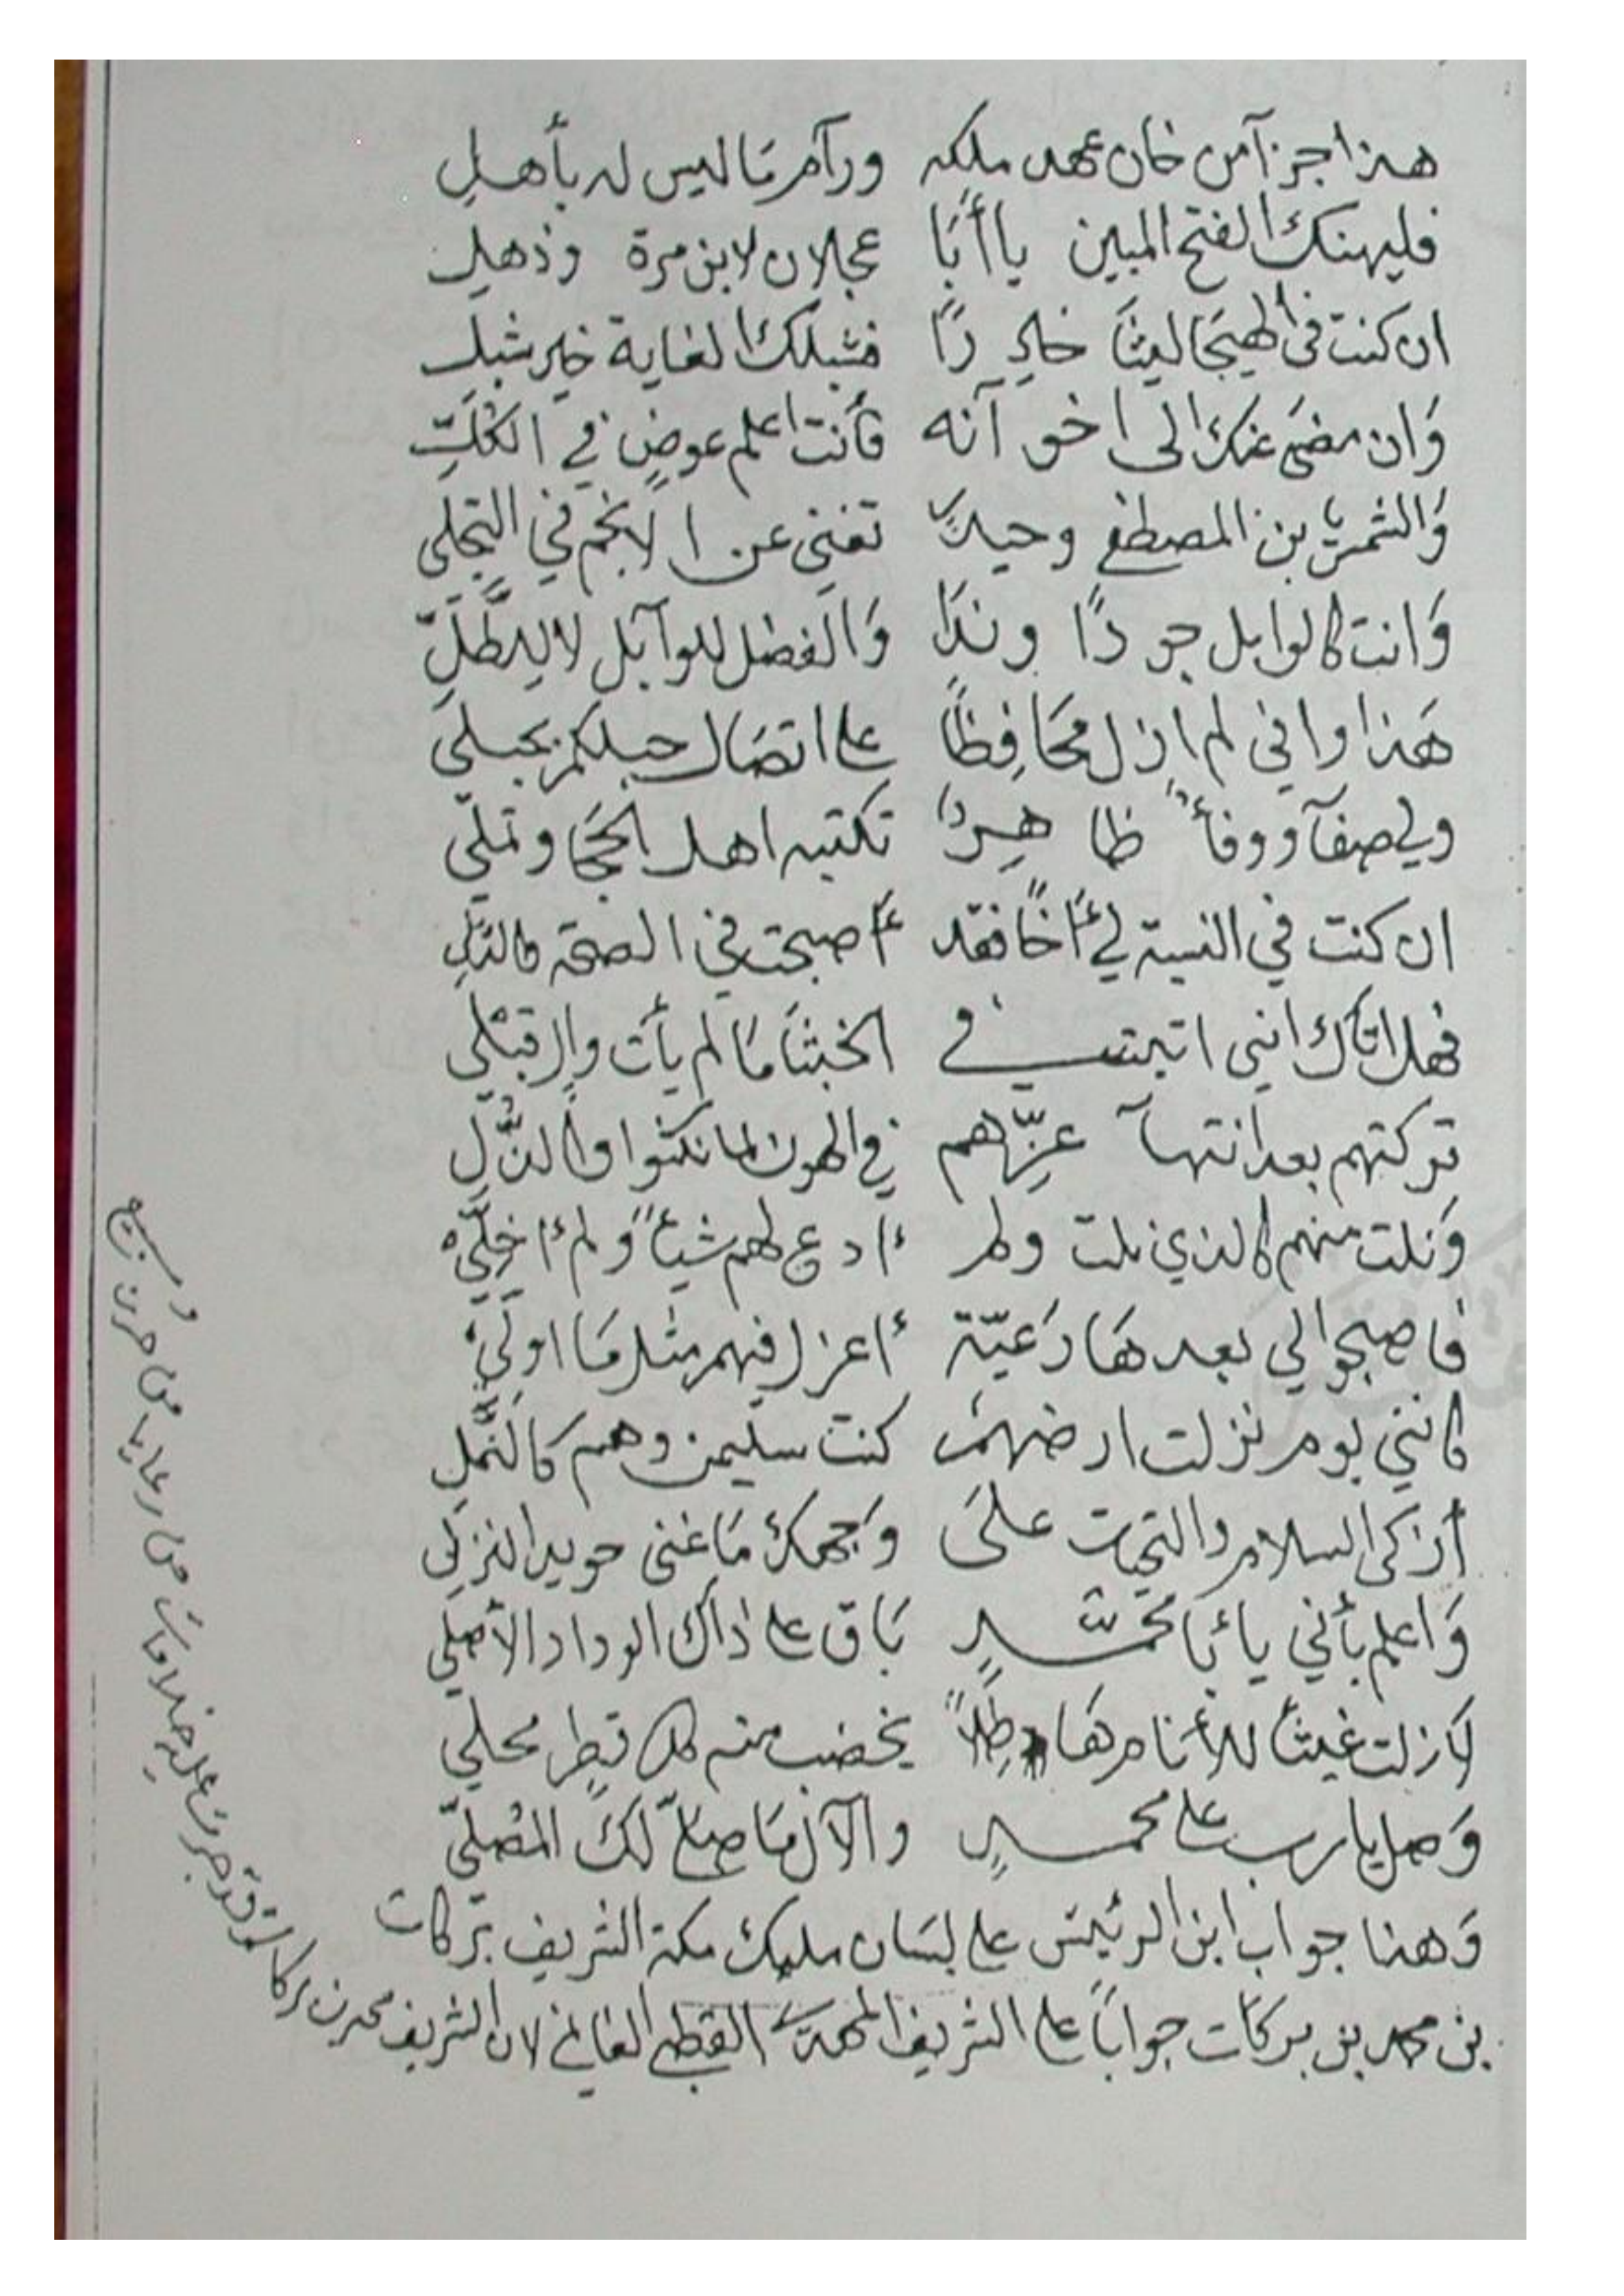 هذا جزآ من خان عهد ملكه ورآم مَا ليس له بأهلِ
فليهنك الفتح المبين يا أبَا عجلان لابن مرة وذهلِ
ان كنت في الهيجَا ليثاً خادِرًا فشبلك الغاية خير شبلِ
وَان مضى عنك الى اخو آنه فأنت اعلم عوضٍ في الكُلِّ
وَالشمس بن المصطفى وحيدًا تغني عن الانجم في التجلي
وَانت كالوابل جودًا وندَا وَالفضل للوآبل لا لِلطَّلِّ
هَذا واني لم ازل محَافِظاً على اتصَال حبلكم بحبلي
ولي صفآ ووفأً ظاهِرًا تكتبه اهل الحجَا وتملي
ان كنت في النسبة لي أخًا فقد أصبحت في الصحة كالنَّجلِ
فهل اتَاك انني اتيت في الخبثَا مَا لم يأت والٍ قبْلي
تركتهم بعد انتهآ عِزّهم في الهون لما نكثوا والذُّلِّ
وَنلت منهم كالذي نلت ولم أدع لهم شيأً ولم أخلِّي
فاصبحوا لي بعدهَا رَعيّة أعزل فيهم مثل مَا اولِّي
كانني يوم نزلت ارضهم كنت سليمن وهم كالنَّملِ
أزكى السلام والتحيات علىَ وَجهك مَا غنى حويد النزلِ
وَاعلم بأني يا أبَا محمّدٍ بَاق على ذاك الوداد الأصلي
لَا زلت غيثاً للأنام هَاطِلاً يخضب منه كل قطرٍ محلي
وَصل يا رب على محمدٍ والآل مَا صلّى لكَ المُصلّي
وَهذا جواب ابن الرئيس على لسَان مليك مكة الشريف بركات
بن محمد بن بركات جواباً على الشريف المهدي القطبي الغانمي لان الشريف محمد بن بركات
قد جرت عليه خلافات من رعايا من حرب